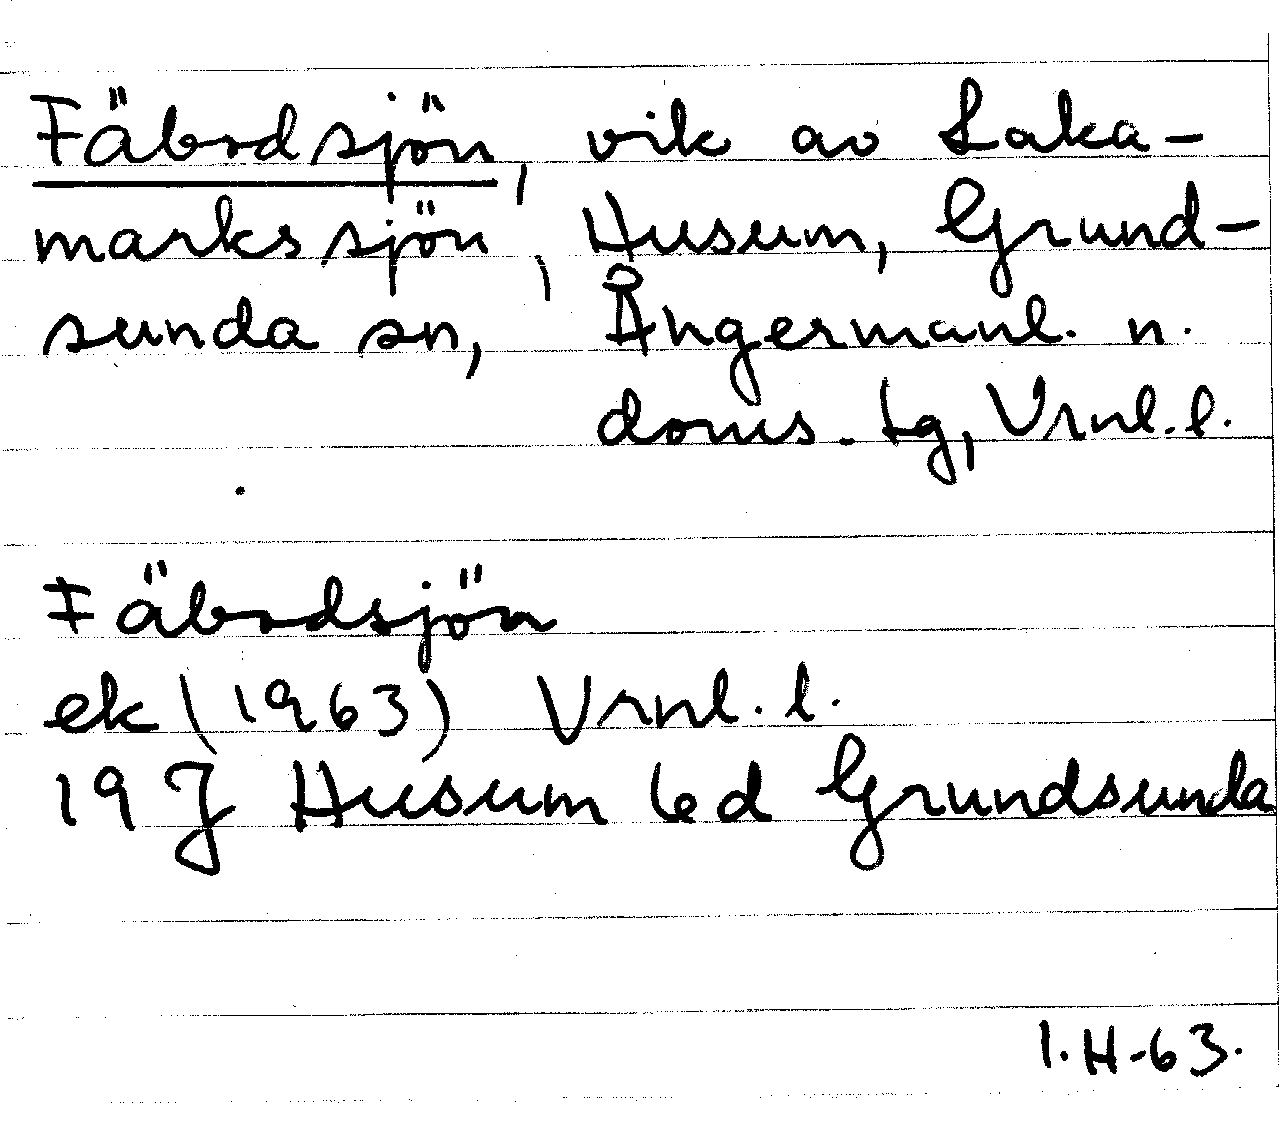 Fäbodsjön, vik av Laka-
markssjön, Husum, Grund-
sunda sn, Ångermanl. n.
doms. tg, Vrnl. l.
Fäbodsjön
ek (1963) Vrnl. l.
19 J Husum 6 d Grundsunda
I.H-63.